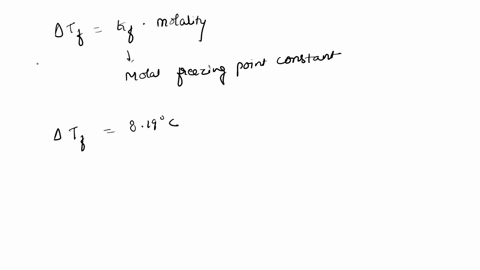 ΔTf = kf · molality
↓
Molal freezing point constant
ΔTf = 8.19°C